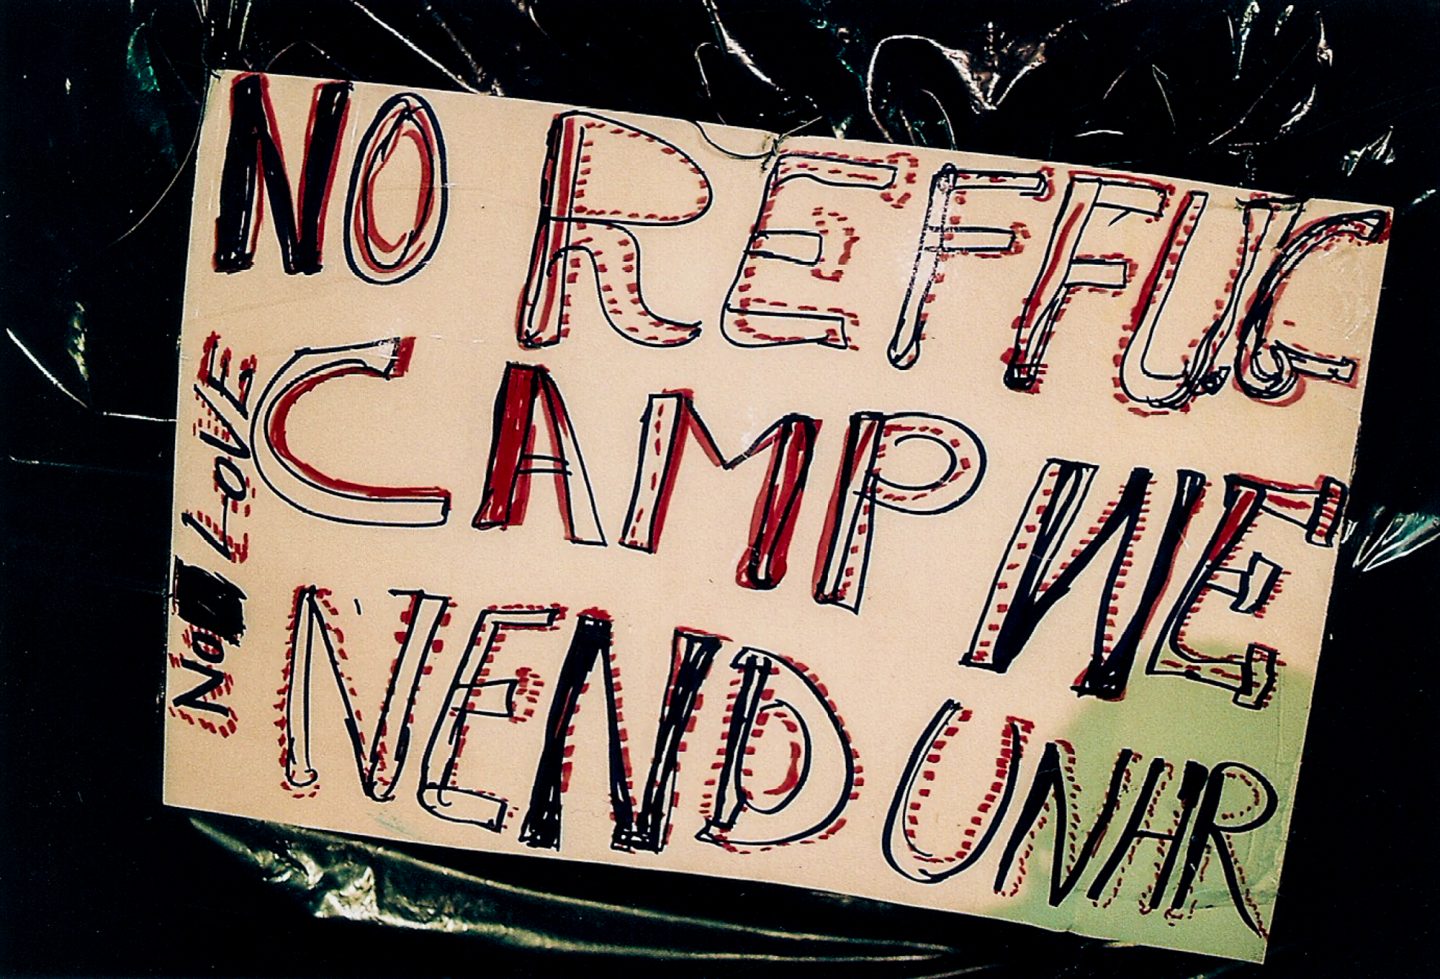 NO REFFUG
CAMP WE
NEND UNHR
No LOVE